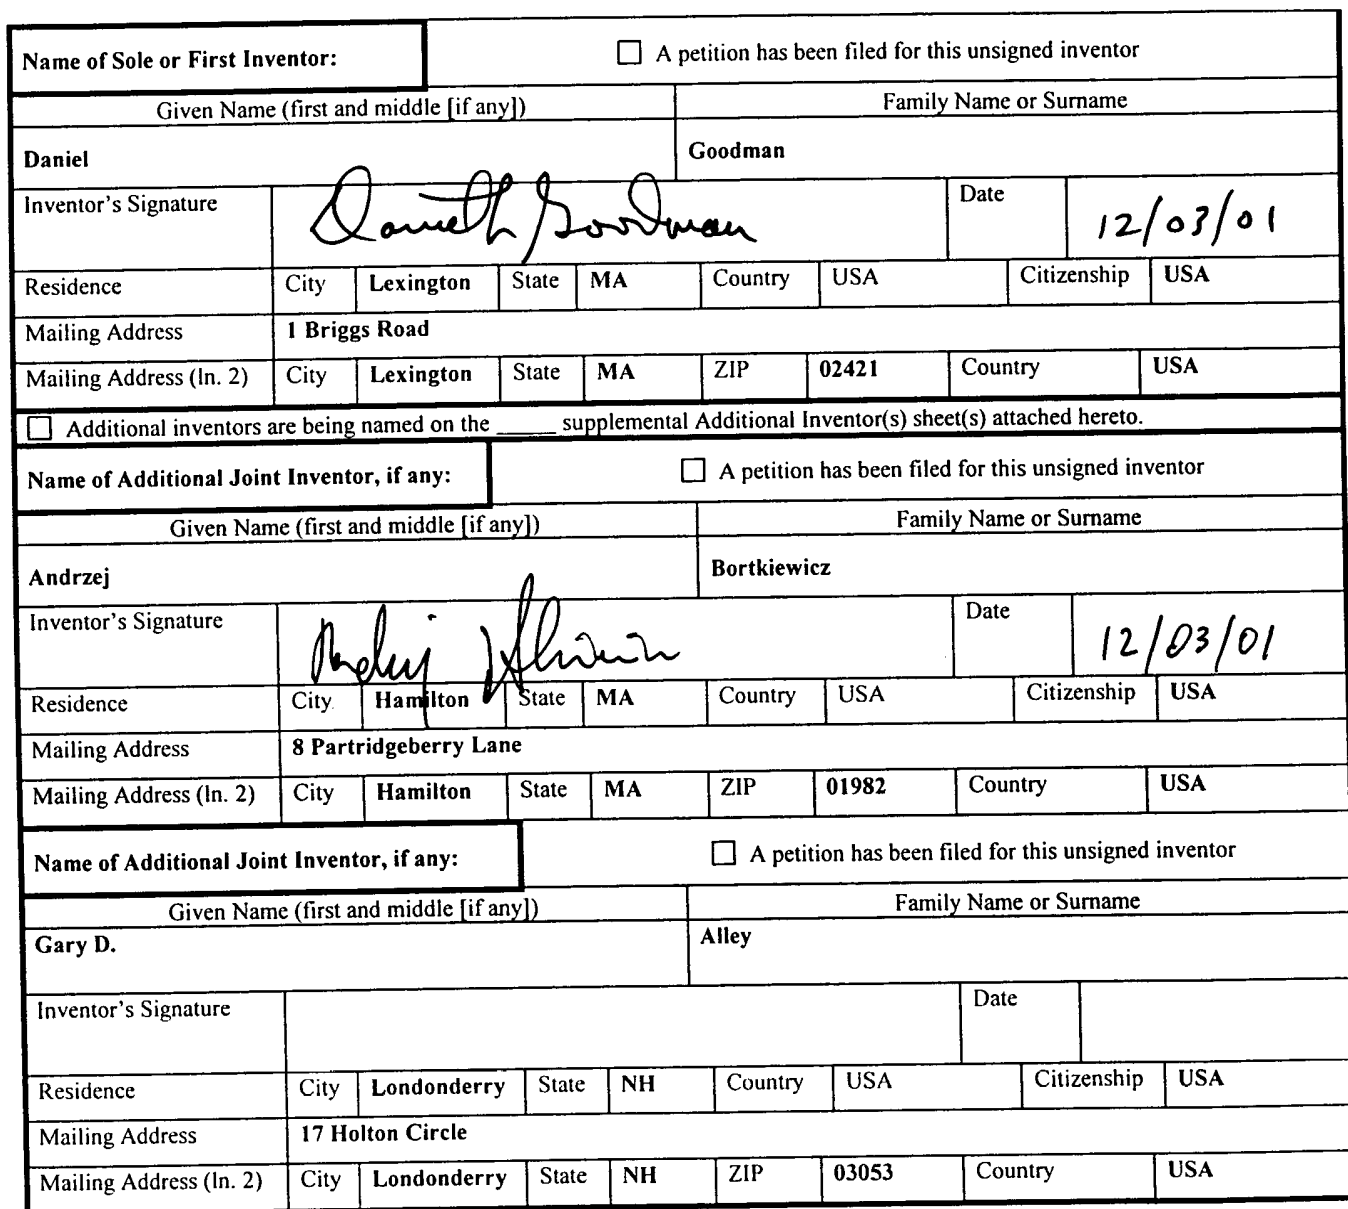 Name of Sole or First Inventor: A petition has been filed for this unsigned inventor
Given Name (first and middle [if any]) Family Name or Surname
Daniel Goodman
Inventor's Signature Daniel H Goodman Date 12/03/01
Residence City Lexington State MA Country USA Citizenship USA
Mailing Address 1 Briggs Road
Mailing Address (ln. 2) City Lexington State MA ZIP 02421 Country USA
Additional inventors are being named on the _____ supplemental Additional Inventor(s) sheet(s) attached hereto.
Name of Additional Joint Inventor, if any: A petition has been filed for this unsigned inventor
Given Name (first and middle [if any]) Family Name or Surname
Andrzej Bortkiewicz
Inventor's Signature Date 12/03/01
Residence City Hamilton State MA Country USA Citizenship USA
Mailing Address 8 Partridgeberry Lane
Mailing Address (ln. 2) City Hamilton State MA ZIP 01982 Country USA
Name of Additional Joint Inventor, if any: A petition has been filed for this unsigned inventor
Given Name (first and middle [if any]) Family Name or Surname
Gary D. Alley
Inventor's Signature Date
Residence City Londonderry State NH Country USA Citizenship USA
Mailing Address 17 Holton Circle
Mailing Address (ln. 2) City Londonderry State NH ZIP 03053 Country USA